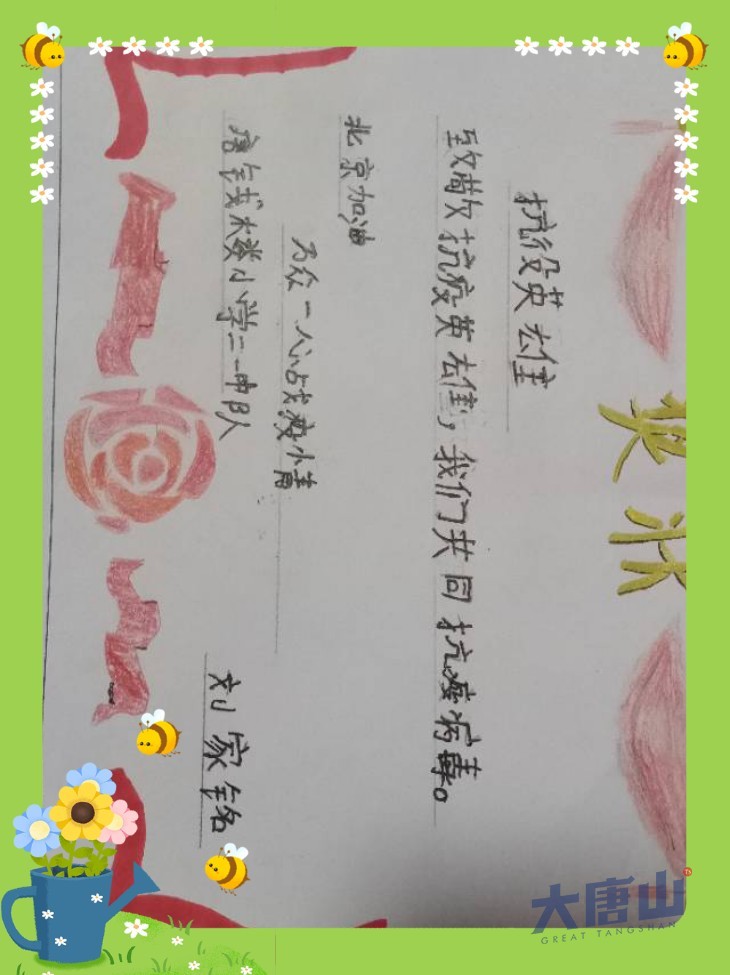 奖状
抗役英雄
致敬抗疫英雄，我们共同抗疫病毒。
北京加油
万众一心战疫情
小学二一中队
刘家铭
大唐山
GREAT TANGSHAN